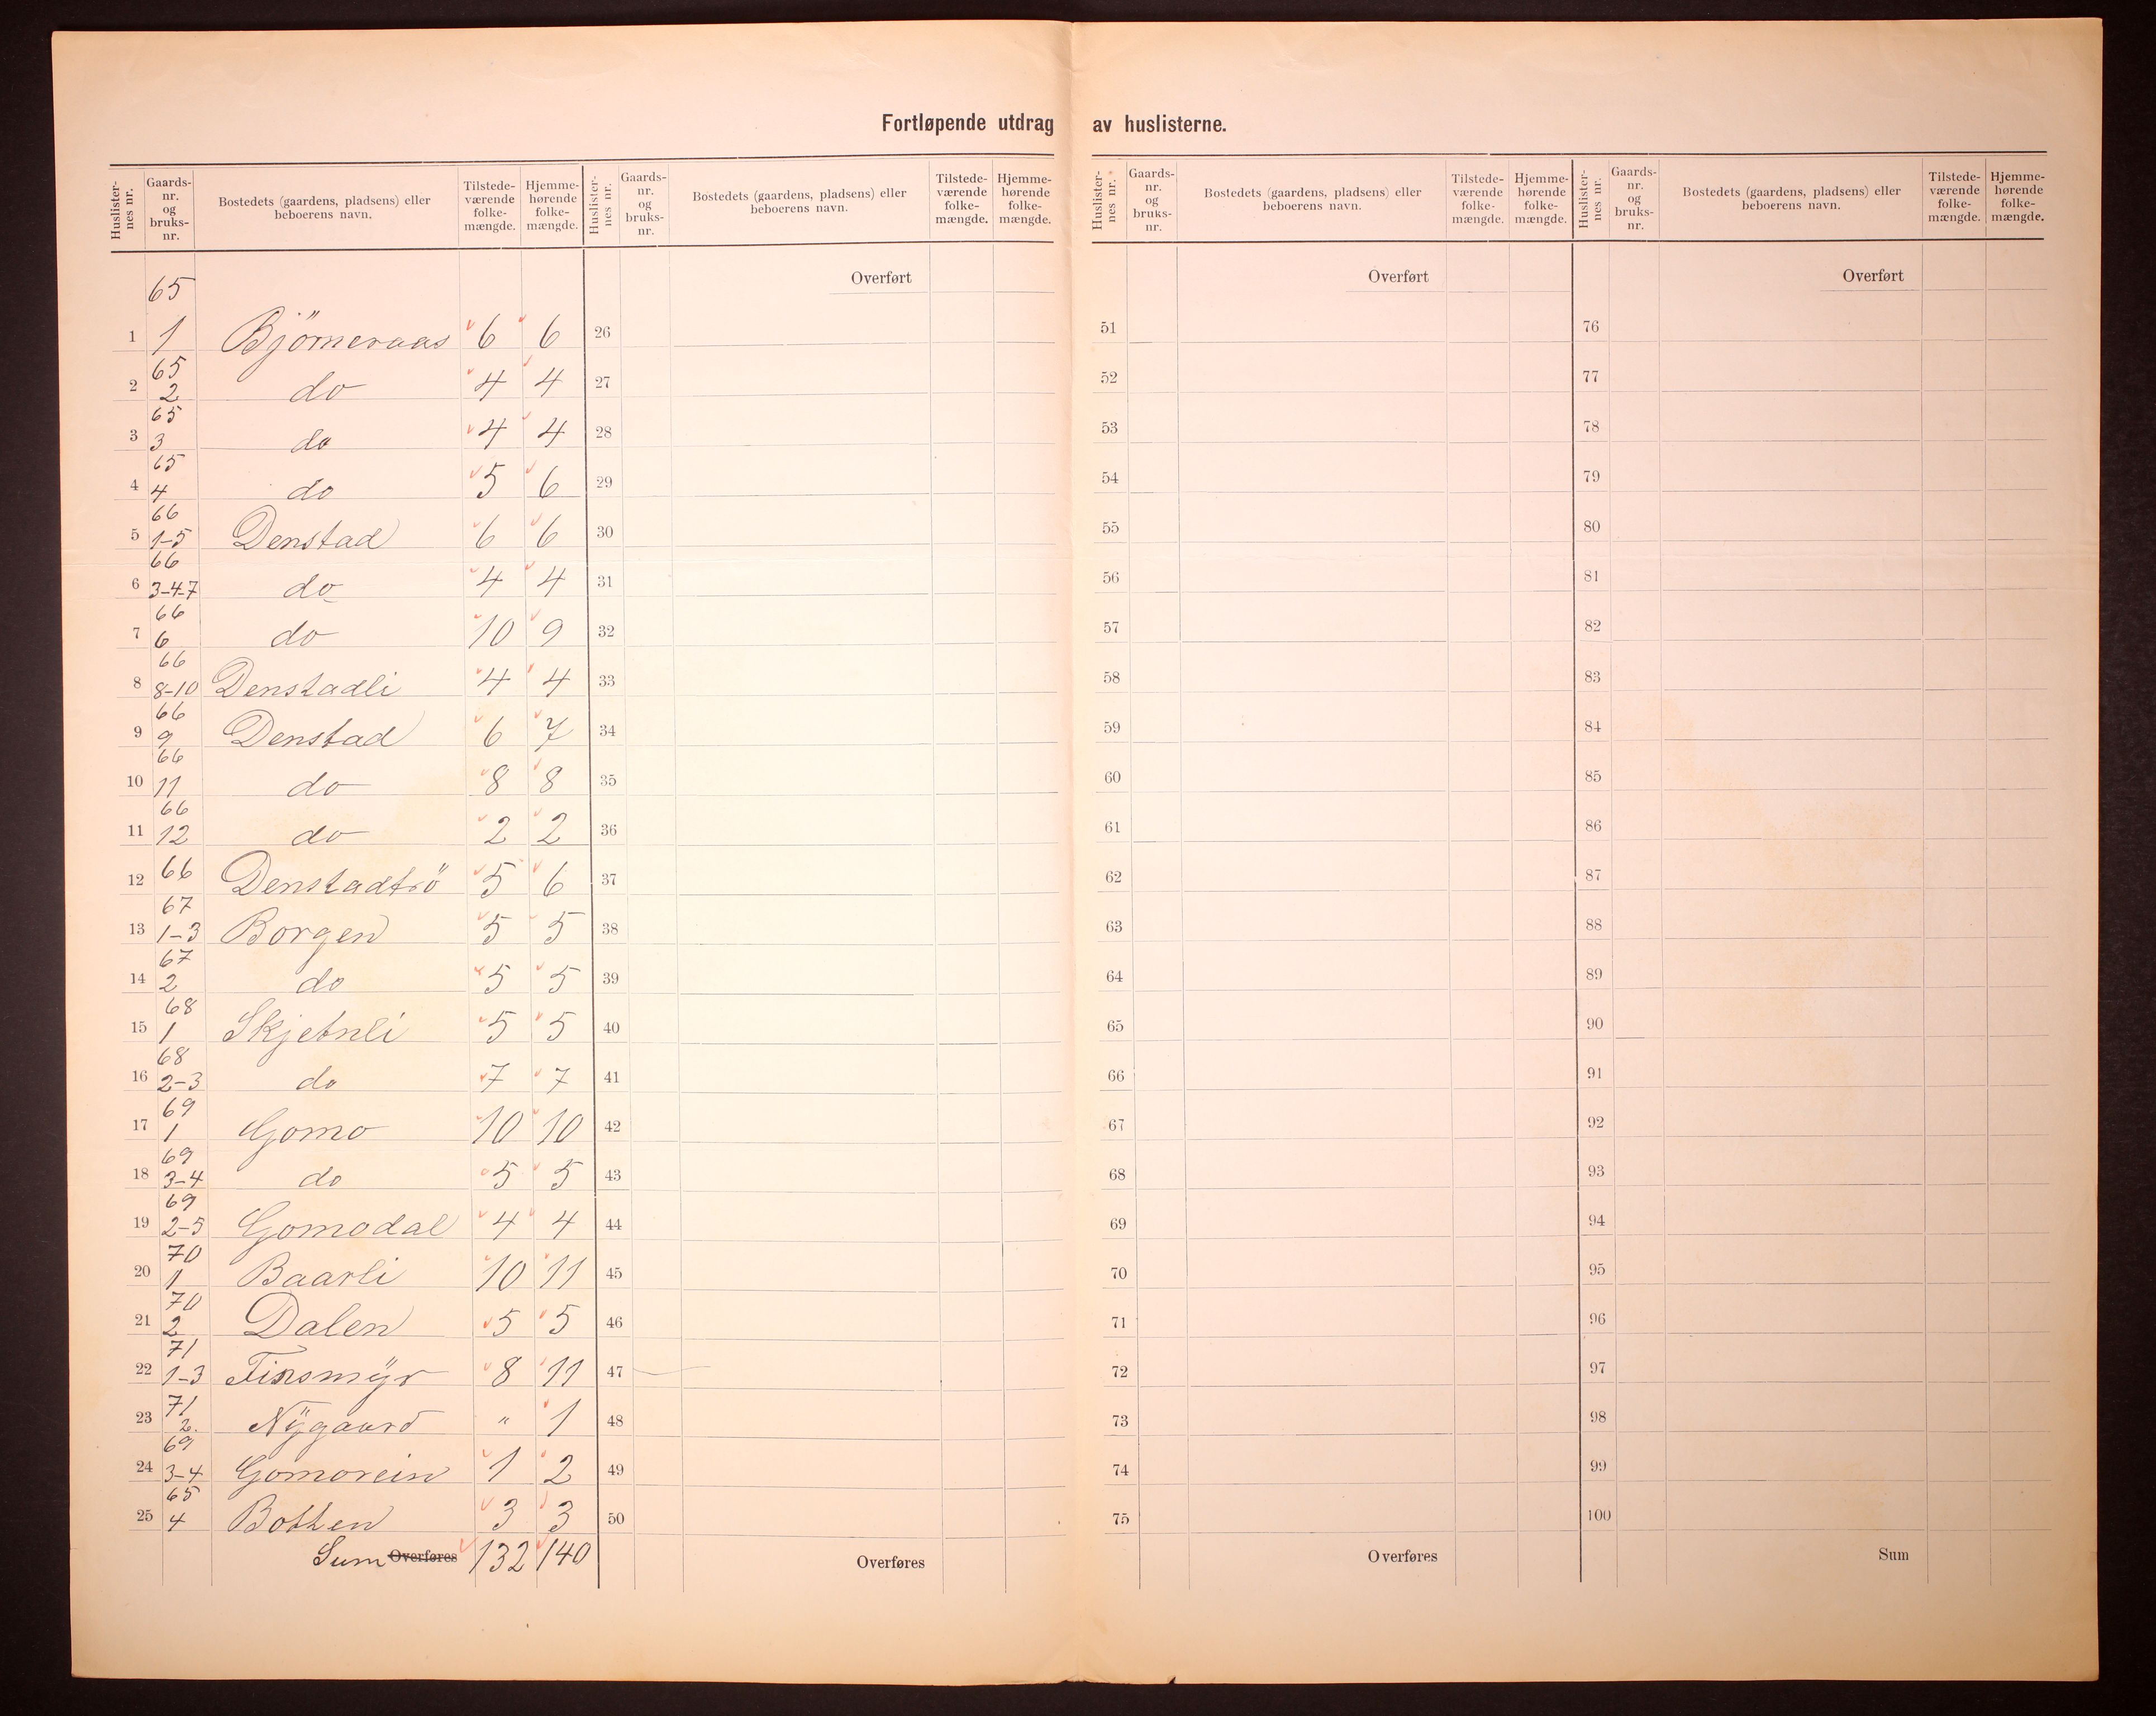 Fortløpende utdrag av huslisterne.
Huslister-nes nr. | Gaards-nr. og bruks-nr. | Bostedets (gaardens, pladsens) eller beboerens navn. | Tilstede-værende folke-mængde. | Hjemme-hørende folke-mængde. | Huslister-nes nr. | Gaards-nr. og bruks-nr. | Bostedets (gaardens, pladsens) eller beboerens navn. | Tilstede-værende folke-mængde. | Hjemme-hørende folke-mængde. | Huslister-nes nr. | Gaards-nr. og bruks-nr. | Bostedets (gaardens, pladsens) eller beboerens navn. | Tilstede-værende folke-mængde. | Hjemme-hørende folke-mængde. | Huslister-nes nr. | Gaards-nr. og bruks-nr. | Bostedets (gaardens, pladsens) eller beboerens navn. | Tilstede-værende folke-mængde. | Hjemme-hørende folke-mængde.
Overført Overført Overført
1 65 1 Bjørneraas 6 6 26 51 76
2 65 2 do 4 4 27 52 77
3 65 3 do 4 4 28 53 78
4 65 4 do 5 6 29 54 79
5 66 1-5 Denstad 6 6 30 55 80
6 66 3-4-7 do 4 4 31 56 81
7 66 6 do 10 9 32 57 82
8 66 8-10 Denstadli 4 4 33 58 83
9 66 9 Denstad 6 7 34 59 84
10 66 11 do 8 8 35 60 85
11 66 12 do 2 2 36 61 86
12 66 Denstadtrö 5 6 37 62 87
13 67 1-3 Borgen 5 5 38 63 88
14 67 2 do 5 5 39 64 89
15 68 1 Skjetnli 5 5 40 65 90
16 68 2-3 do 7 7 41 66 91
17 69 1 Gomo 10 10 42 67 92
18 69 3-4 do 5 5 43 68 93
19 69 2-5 Gomodal 4 4 44 69 94
20 70 1 Baarli 10 11 45 70 95
21 70 2 Dalen 5 5 46 71 96
22 71 1-3 Finsmyr 8 11 47 72 97
23 71 2. Nygaard " 1 48 73 98
24 69 3-4 Gomorein 1 2 49 74 99
25 65 4 Botten 3 3 50 75 100
Sum Overføres 132 140 Overføres Overføres Sum